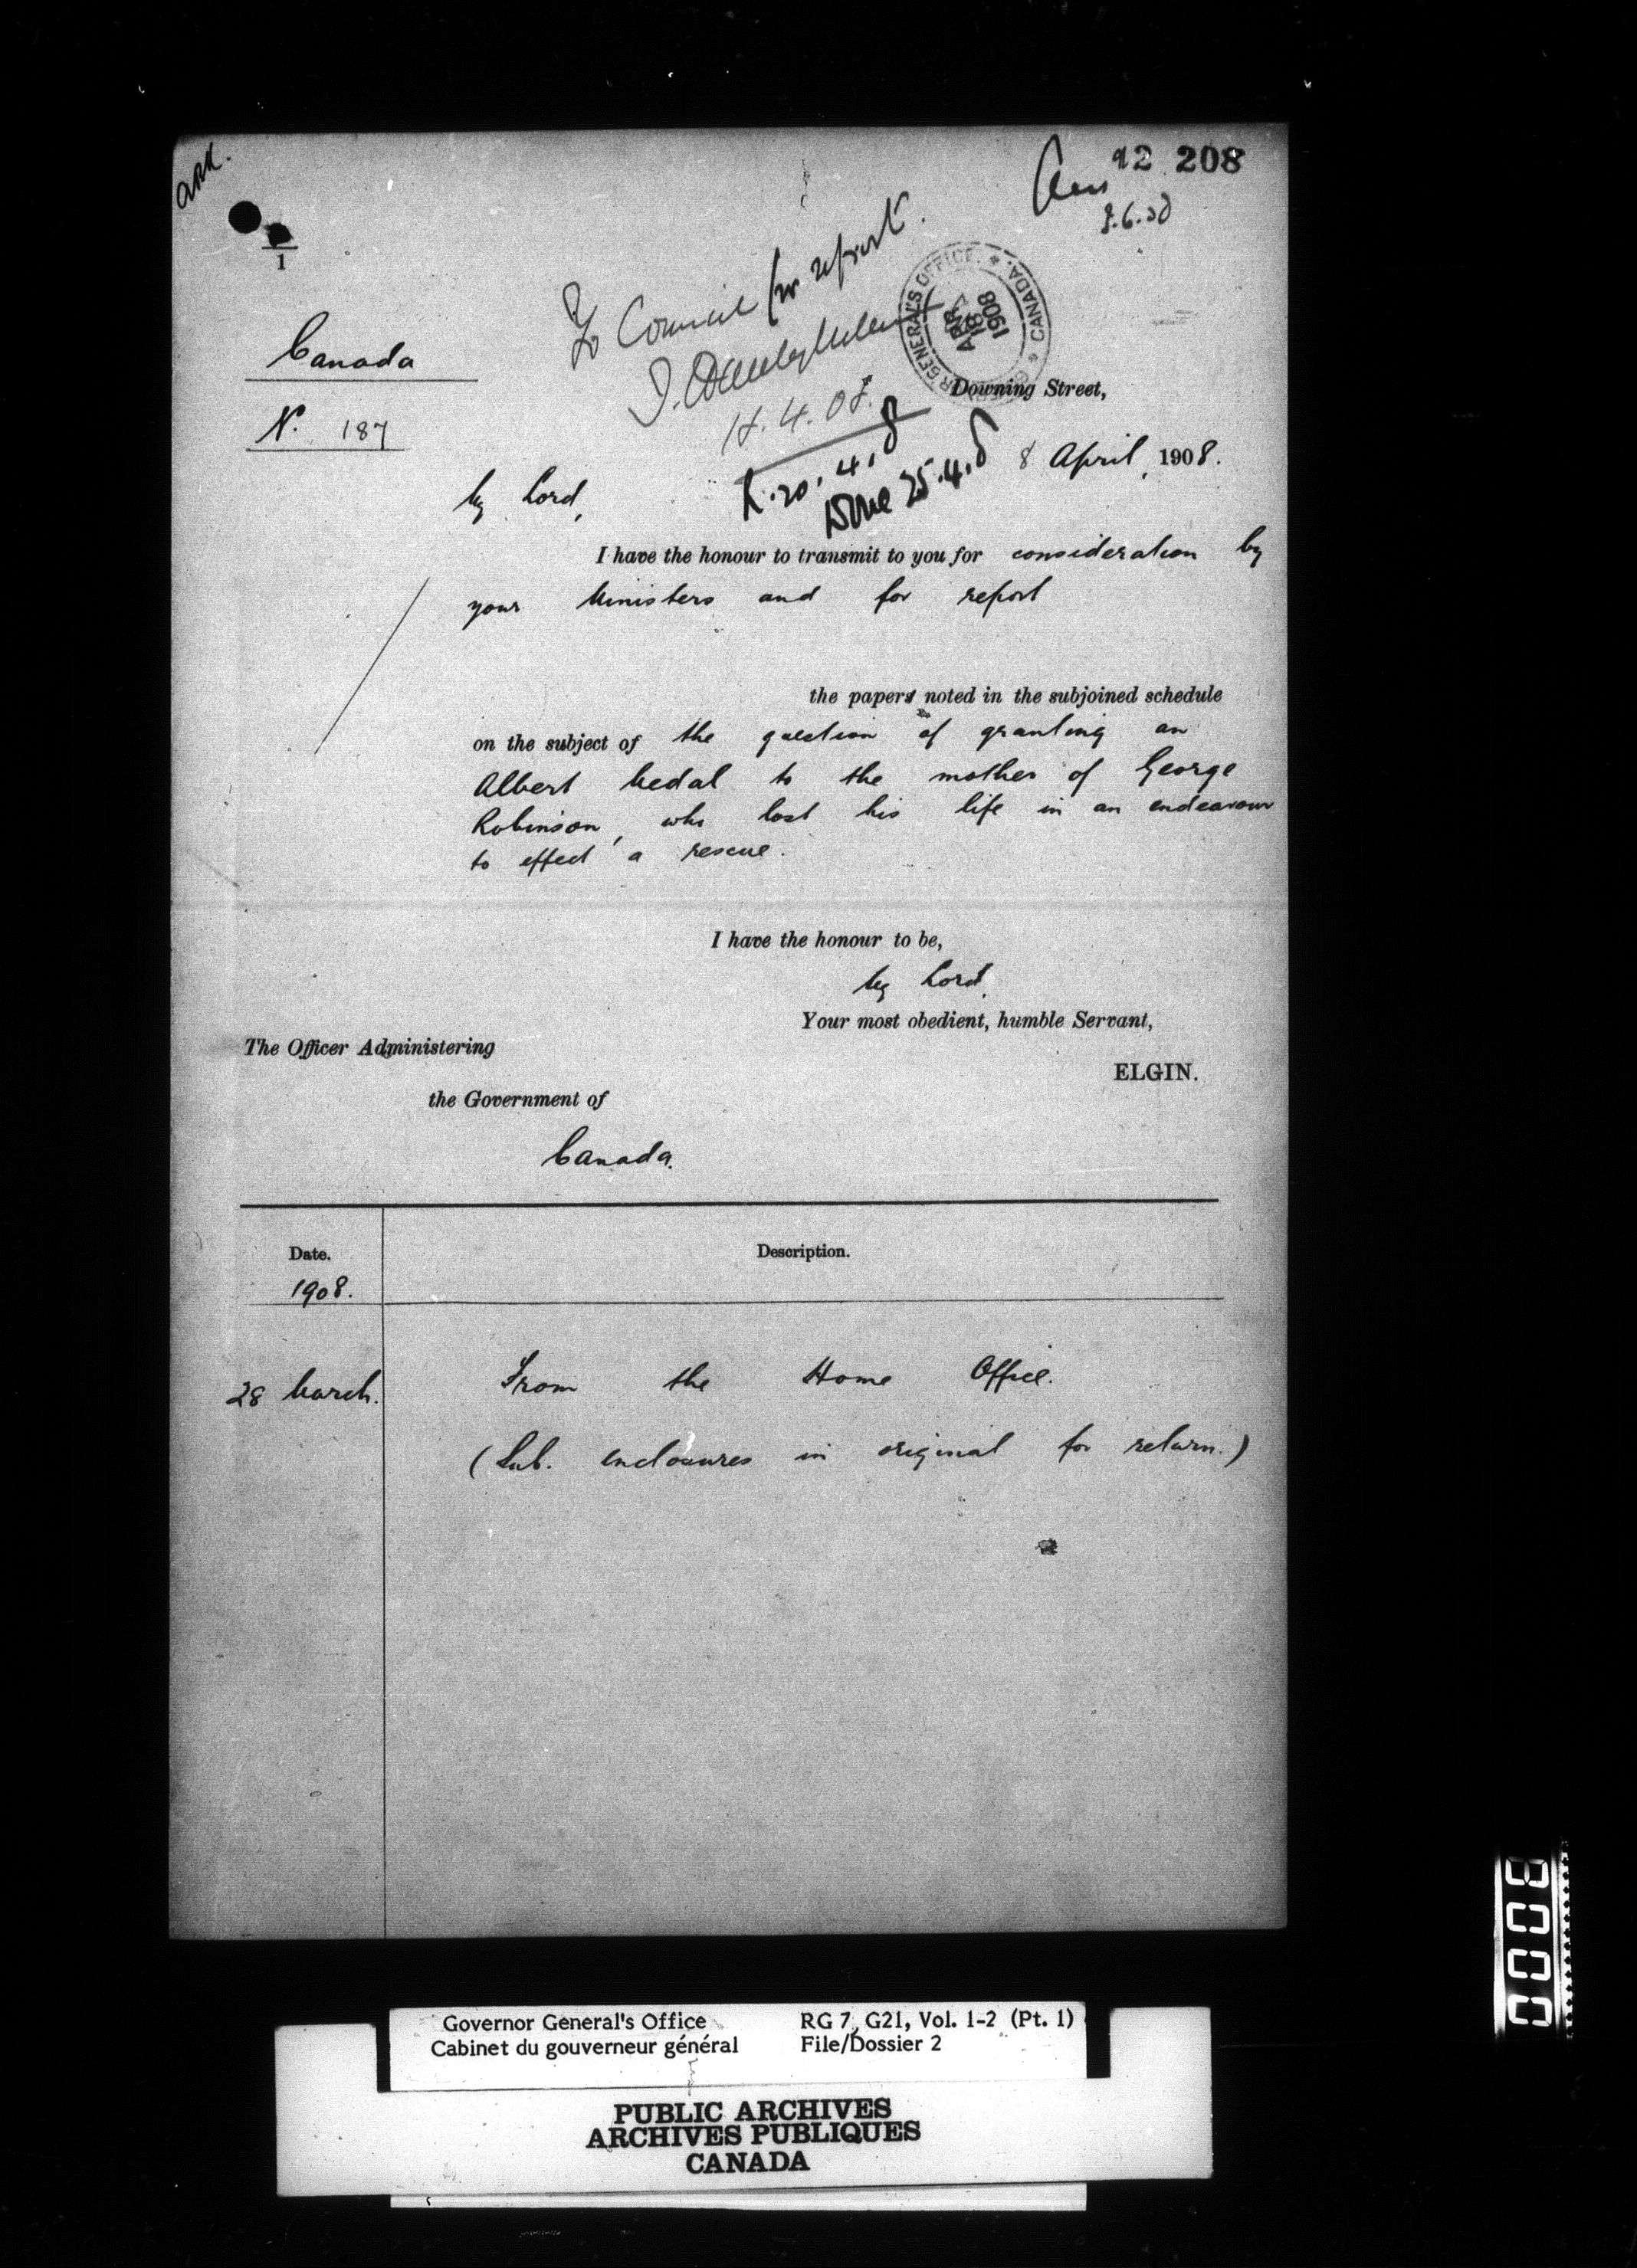 ack.
92 208
Ans
1
To Council for report.
18.4.08.
GOVERNOR GENERAL'S OFFICE. * CANADA. *
APR 18 1908
Canada
N. 187
Downing Street,
R. 20.4.8
Done 25.4.8
8 April, 1908.
My Lord,
I have the honour to transmit to you for consideration by
your Ministers and for report
the papers noted in the subjoined schedule
on the subject of the question of granting an
Albert Medal to the mother of George
Robinson, who lost his life in an endeavour
to effect a rescue.
I have the honour to be,
My Lord,
Your most obedient, humble Servant,
ELGIN.
The Officer Administering
the Government of
Canada.
Date. Description.
1908.
28 March. From the Home Office.
(Sub. enclosures in original for return.)
0008
Governor General's Office RG 7, G21, Vol. 1-2 (Pt. 1)
Cabinet du gouverneur général File/Dossier 2
PUBLIC ARCHIVES
ARCHIVES PUBLIQUES
CANADA